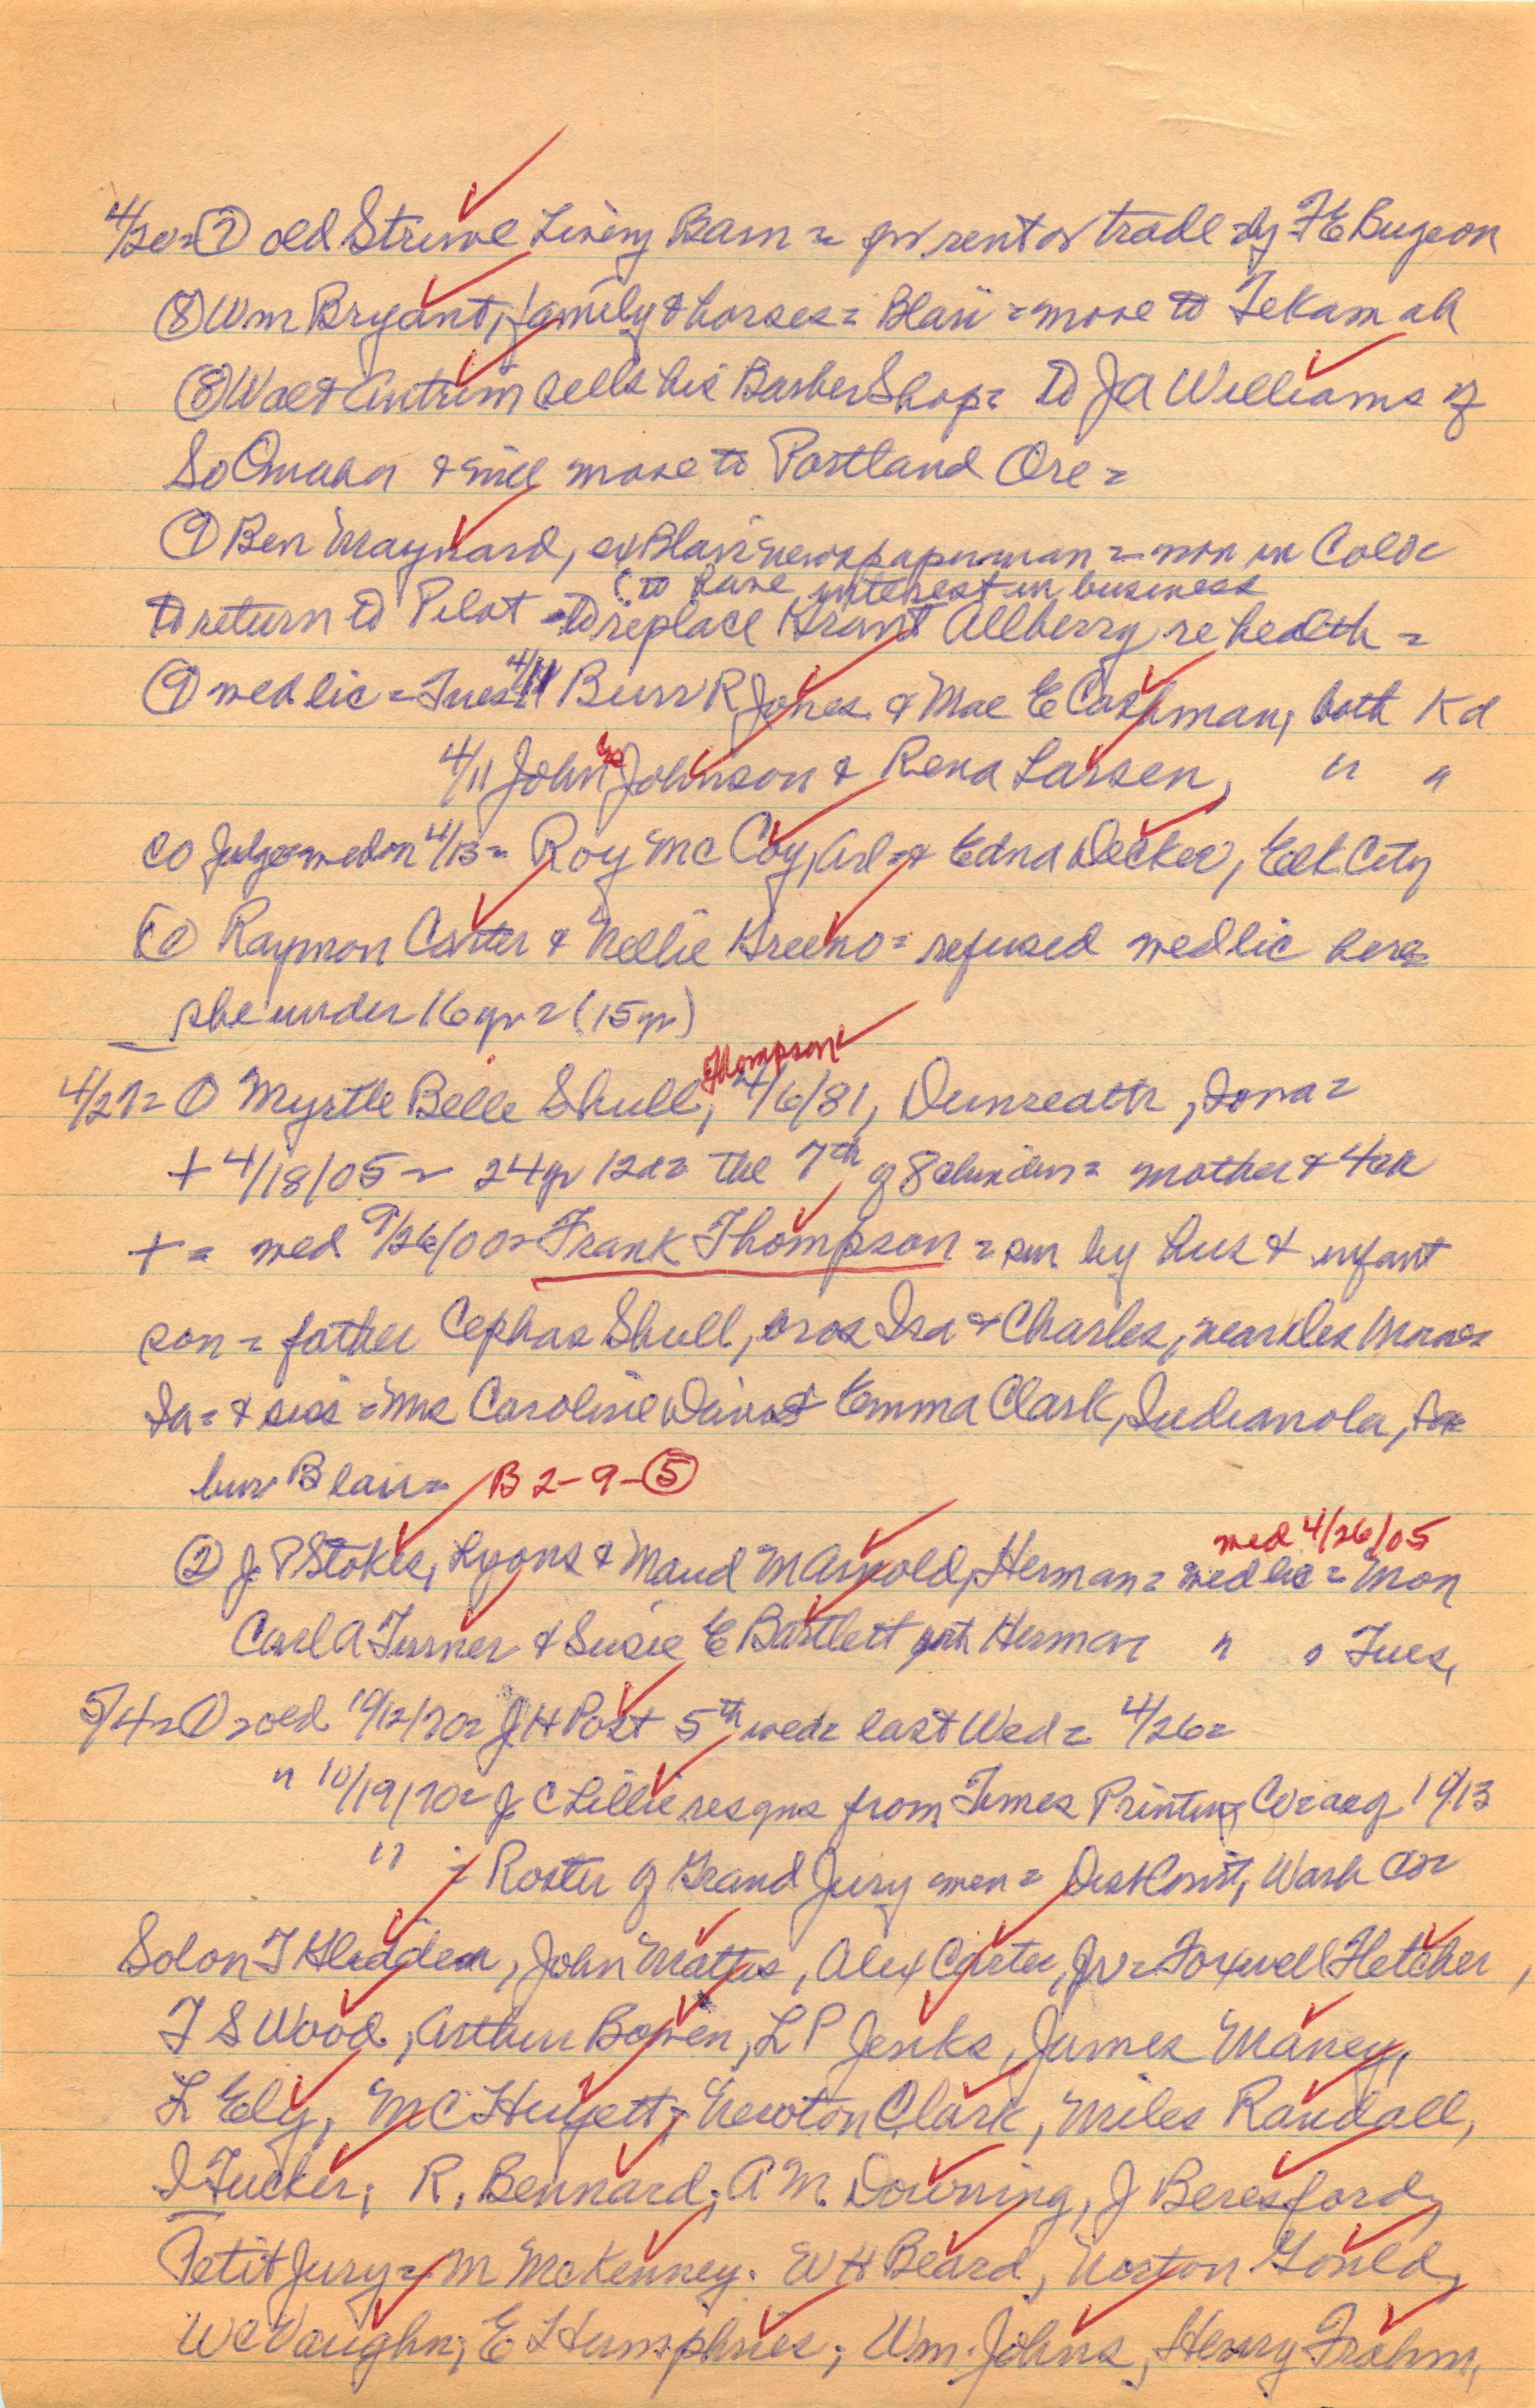 4/20= ⑦ old Struve Livery Barn = for rent or trade = by F E Burgeon
⑧ Wm Bryant, family & horses = Blair = move to Tekamah
⑧ Walt Antrim sells his Barber Shop = to J A Williams of
So Omaha & will move to Portland Ore =
⑨ Ben Maynard, ex Blair newspaperman = now in Colo
(to have interest in business
to return to Pilot = to replace Grant Allberry re health =
⑨ wed lic = Tues 4/11 Burr R Jones & Mae E Cashman, both Kd
4/11 John Johnson & Rena Larsen, " "
Co Judge = wed on 4/13 = Roy McCoy, Arl = & Edna Decker, Elk City
Raymon Carter & Nellie Greeno = refused wed lic here =
she under 16 yr = (15 yr)
Thompson
4/27= ① Myrtle Belle Shull, 4/6/81, Dunreath, Iowa =
+ 4/18/05 = 24 yr 12 da = the 7th of 8 = mother & 4 ch
+ = wed 9/26/00 = Frank Thompson = sur by hus & infant
son = father Cephas Shull, bros Ira & Charles, near Des Moines
Ia = & sis = Mrs Caroline & Emma Clark, Indianola, Ia =
bur Blair = B 2-9-⑤
wed 4/26/05
② J P Stokes, Lyons & Maud M Arnold, Herman = wed lic = Mon
Carl A Turner & Susie E Bartlett both Herman " " Tues,
5/4= ① = old 10/12/70 = J H Post 5th wed = last Wed = 4/26 =
" 10/19/70 = J C Lillie resgns from Times Printing Co = as of 10/13
" = Roster of Grand Jury men = Dist Court, Wash Co =
Solon T Glidden, John Mattes, Alex Carter, Jr = Foxwell Fletcher,
T S Wood, Arthur Bowen, L P Jenks, James Maney,
L Ely, M C Huyett, Newton Clark, Miles Randall,
I Tucker, R. Bennard, A M. Downing, J Beresford,
Petit Jury = M McKenney. W H Beard, Norton Gould,
W C Vaughn, E L Humphries, Wm. Johns, Henry Frahm,